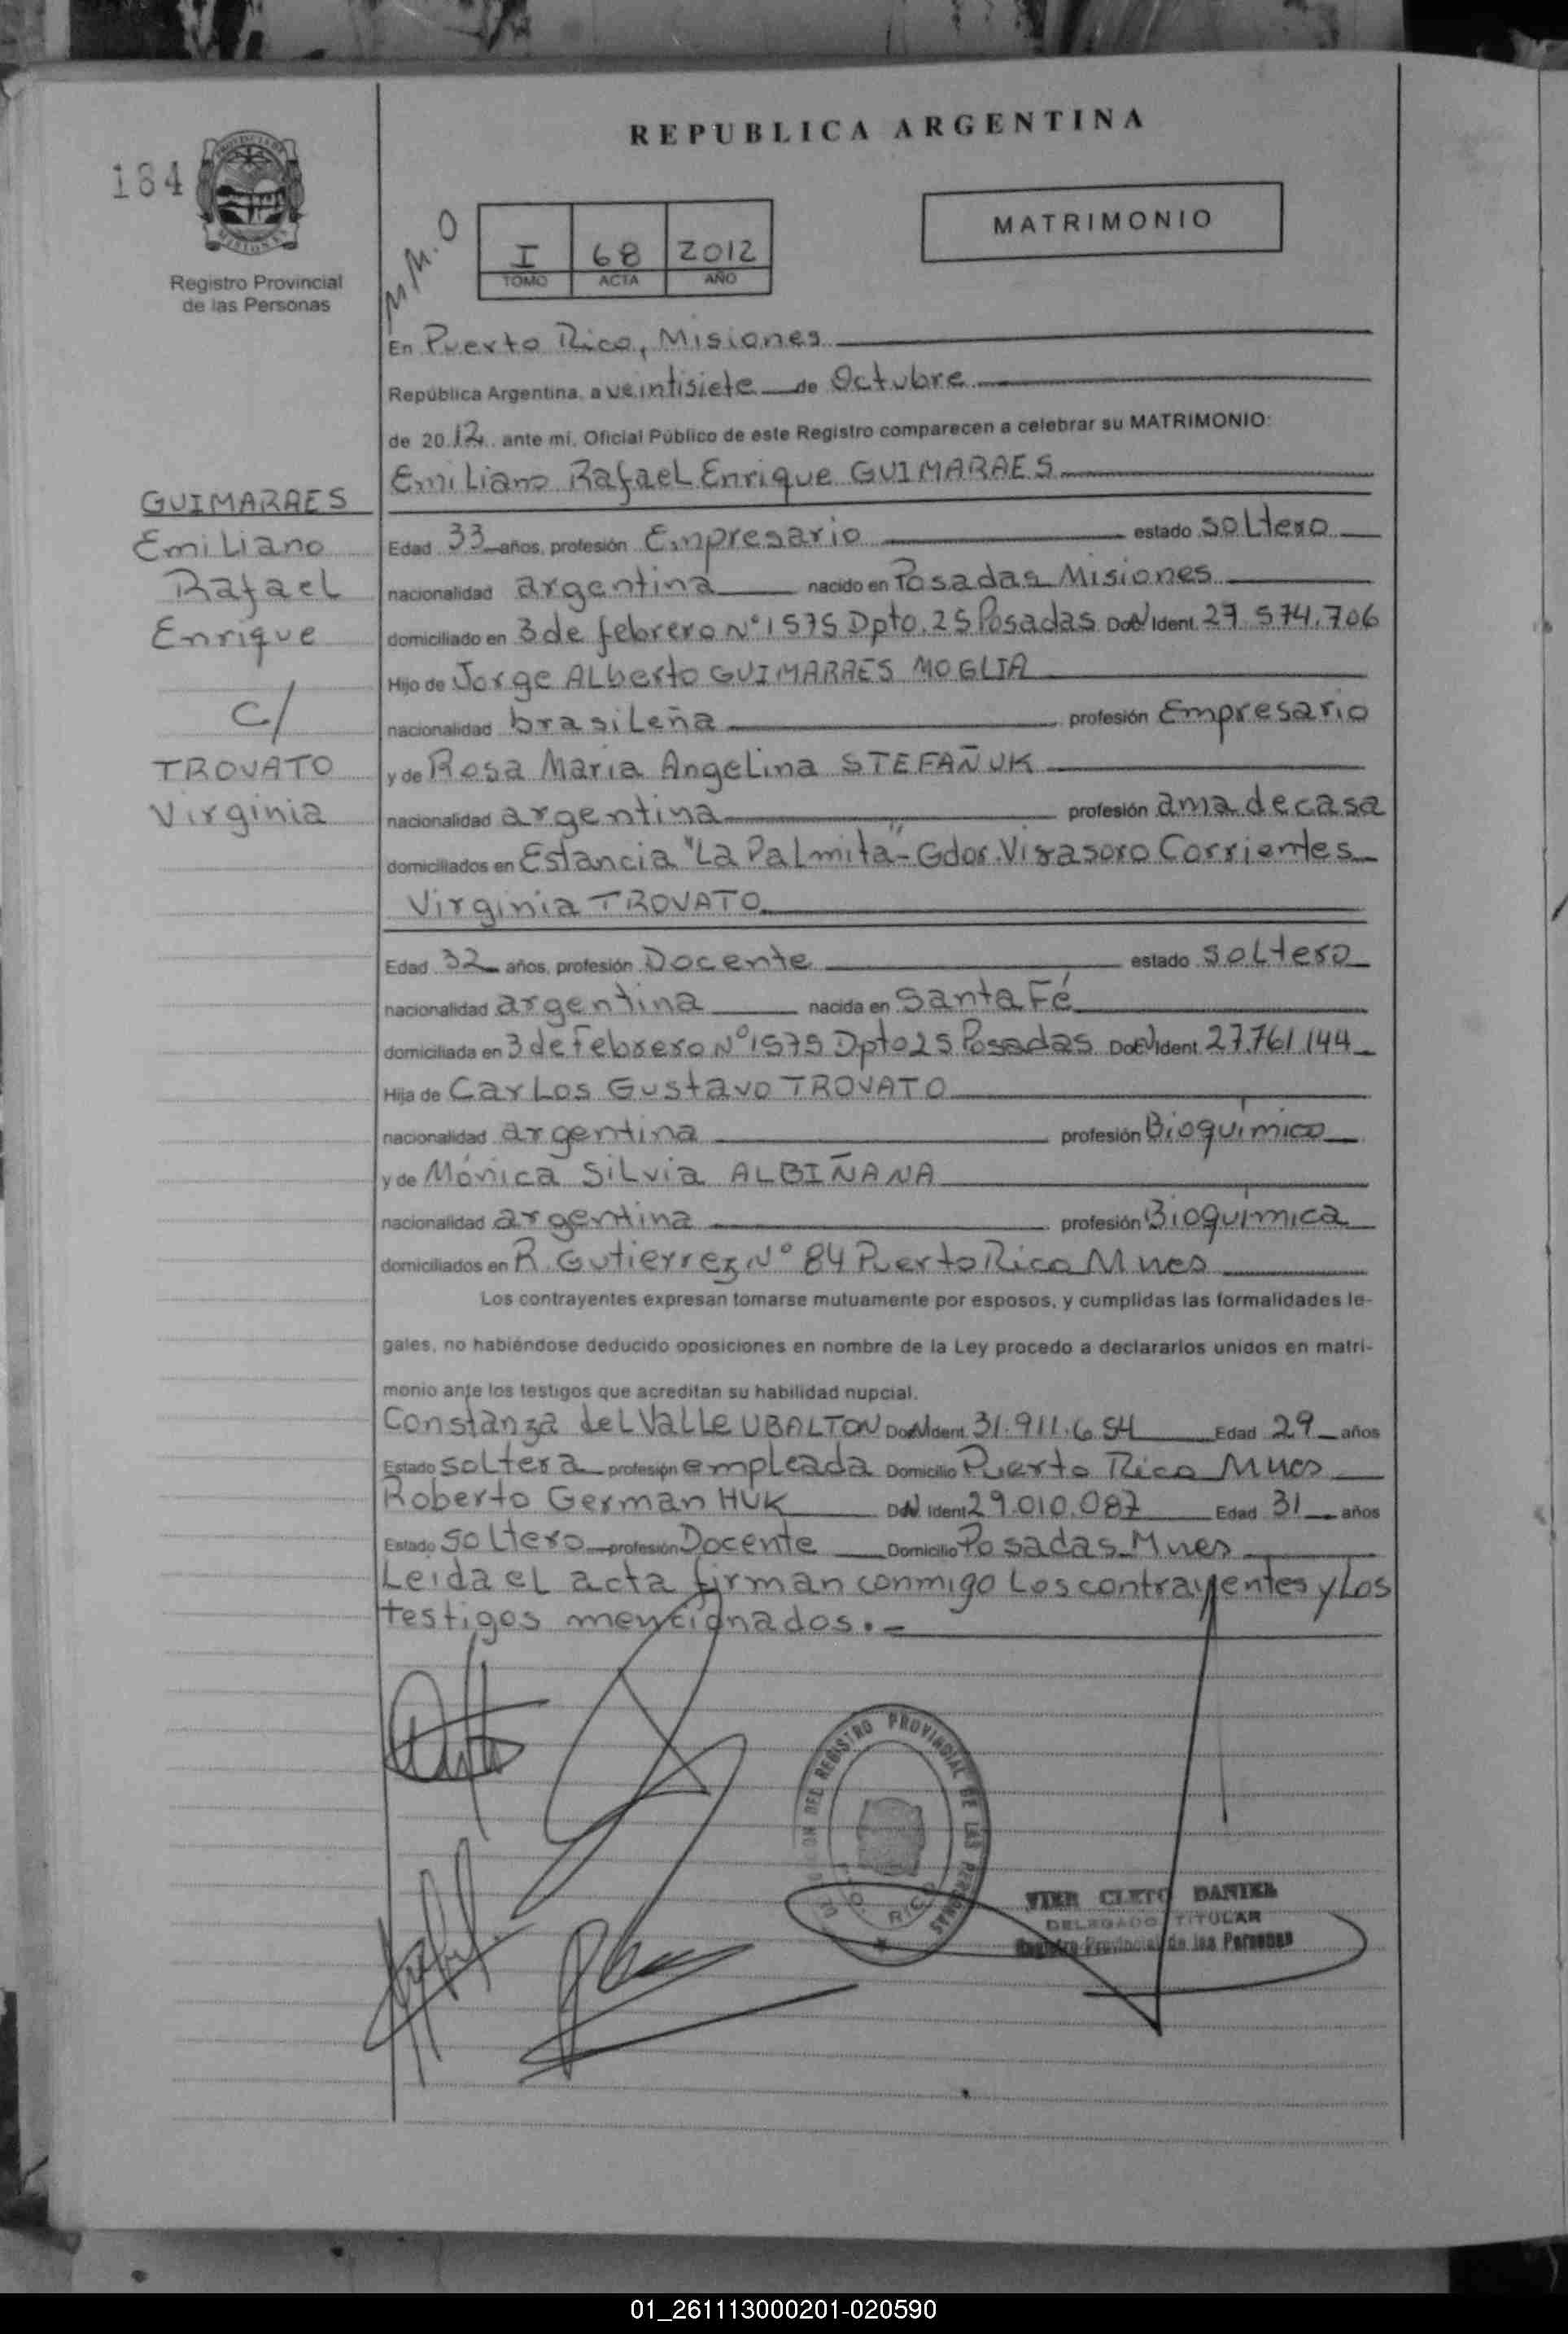 REPUBLICA ARGENTINA
184
MATRIMONIO
M.M.O
I 68 2012
TOMO ACTA AÑO
PROVINCIA DE
MISIONES
Registro Provincial
de las Personas
En Puerto Rico, Misiones
República Argentina, a veintisiete de Octubre
de 2012. ante mi, Oficial Público de este Registro comparecen a celebrar su MATRIMONIO:
Emiliano Rafael Enrique GUIMARAES
GUIMARAES
Emiliano
Rafael
Enrique
C/
TROVATO
Virginia
Edad 33 años, profesión Empresario estado soltero
nacionalidad argentina nacido en Posadas Misiones
domiciliado en 3 de febrero N° 1575 Dpto. 25 Posadas Doc. N Ident. 27.574.706
Hijo de Jorge Alberto GUIMARAES MOGLIA
nacionalidad brasileña profesión Empresario
y de Rosa María Angelina STEFAÑUK
nacionalidad argentina profesión ama de casa
domiciliados en Estancia "La Palmita"- Gdor. Virasoro Corrientes
Virginia TROVATO
Edad 32 años, profesión Docente estado soltero
nacionalidad argentina nacida en Santa Fé
domiciliada en 3 de Febrero N° 1575 Dpto 25 Posadas Doc. N Ident. 27.761.144
Hija de Carlos Gustavo TROVATO
nacionalidad argentina profesión Bioquímico
y de Mónica Silvia ALBIÑANA
nacionalidad argentina profesión Bioquímica
domiciliados en R. Gutierrez N° 84 Puerto Rico Mnes
Los contrayentes expresan tomarse mutuamente por esposos, y cumplidas las formalidades le-
gales, no habiéndose deducido oposiciones en nombre de la Ley procedo a declararlos unidos en matri-
monio ante los testigos que acreditan su habilidad nupcial.
Constanza del Valle UBALTON Doc. N Ident. 31.911.654 Edad 29 años
Estado soltera profesión empleada Domicilio Puerto Rico Mnes
Roberto German HUK D N Ident 29.010.087 Edad 31 años
Estado soltero profesión Docente Domicilio Posadas Mnes
Leida el acta firman conmigo los contrayentes y los
testigos mencionados.-
DEL REGISTRO PROVINCIAL DE LAS PERSONAS
PTO. RICO
VIER CLETO DANIEL
DELEGADO TITULAR
Registro Provincial de las Personas
01_261113000201-020590